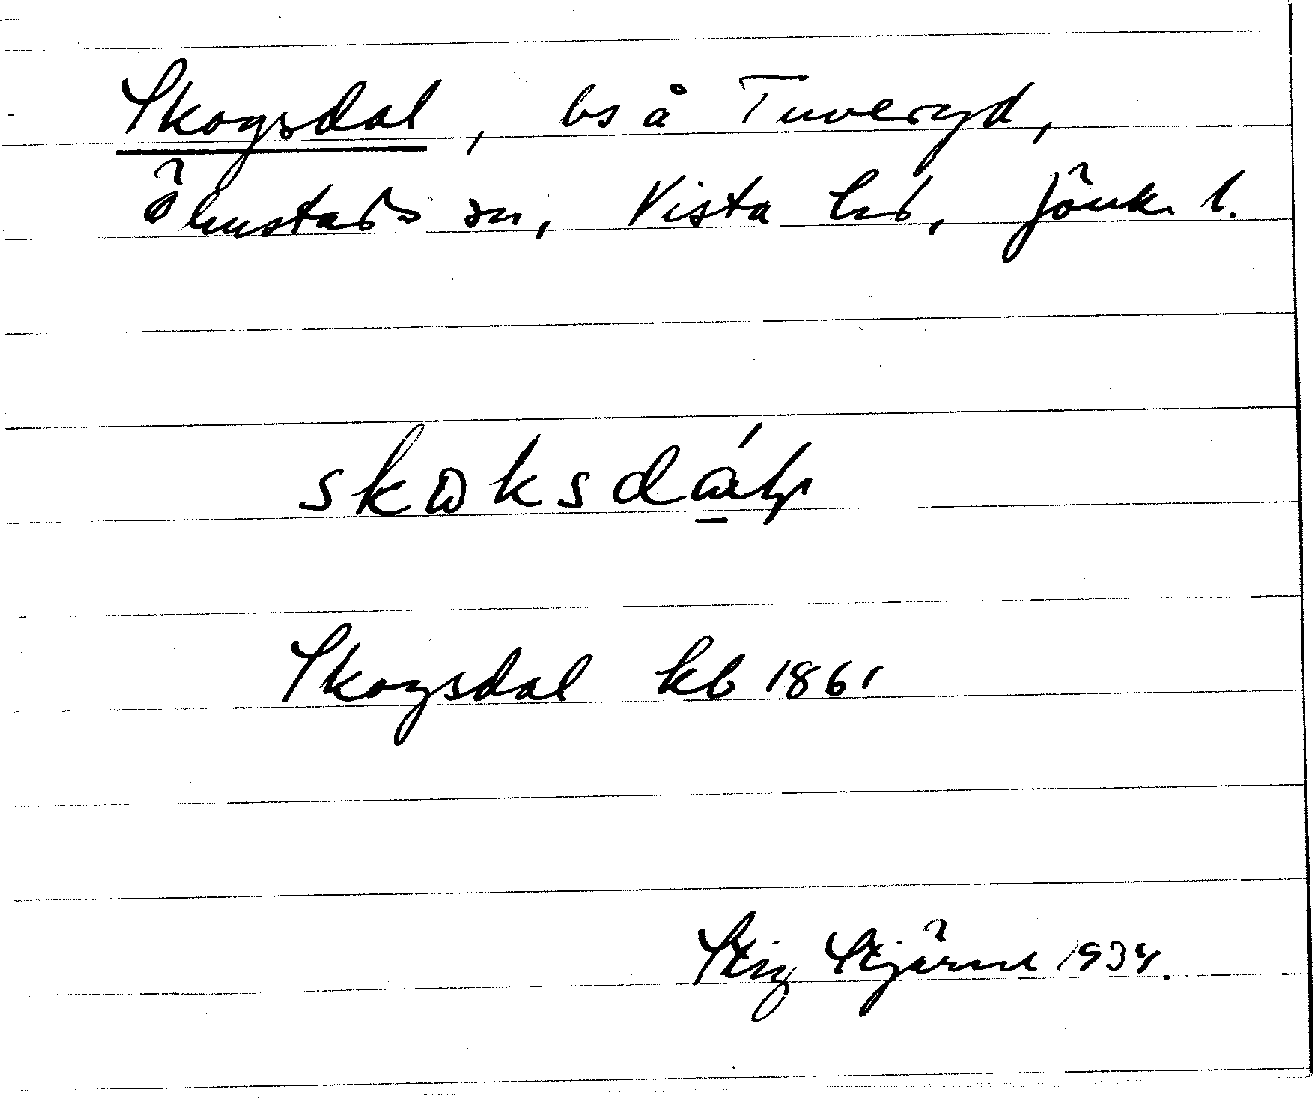 Skogsdal, bs å Tuveryd,
Ölmstads sn, Vista hd, Jönk. l.
Skogsdal kb 1861
Stig Stjärne 1934.